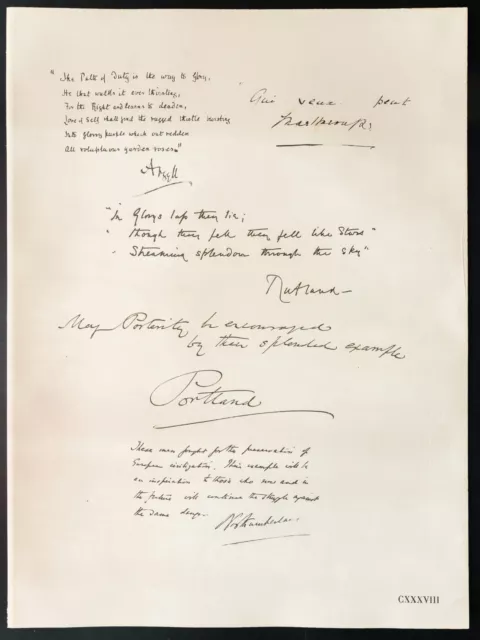 "The Path of Duty is the way to Glory,
He that walks it ever thirsting,
For the Right and learns to deaden,
Love of Self shall find the rugged thistle bursting
Into glossy purple which out redden
All voluptuous garden roses."
Argyll
Qui veut peut
Marlborough
"In Glory's lap they lie;
"Though they fell they fell like Stars"
"Streaming splendour through the sky"
Rutland
May Posterity be encouraged
by their splendid example
Portland
These men fought for the preservation of
European civilization. Their example will be
an inspiration to those who now and in
the future will continue the struggle against
the same danger.
Northumberland
CXXXVIII